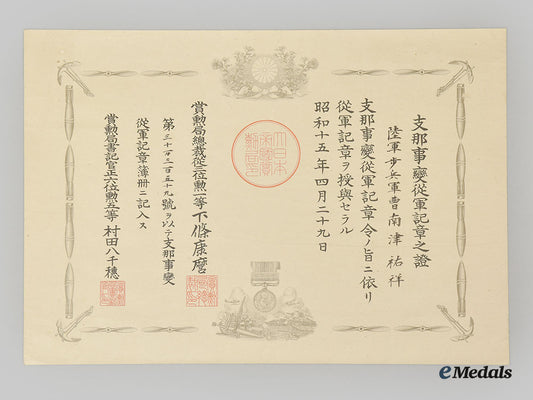 支那事變從軍記章之證
陸軍步兵軍曹南津祐祥
支那事變從軍記章令ノ旨ニ依リ
從軍記章ヲ授與セラル
昭和十五年四月二十九日
賞勲局總裁從二位勲一等下條康麿
第三十百三百五十九號ヲ以テ支那事變
從軍記章簿册ニ記入ス
賞勲局書記官正六位勲五等村田八千穗
eMedals